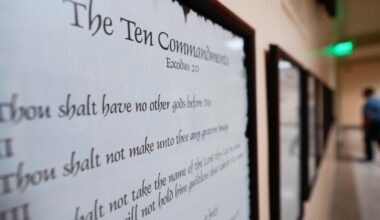 The Ten Commandments
Exodus 20
Thou shalt have no other gods before Me
II
Thou shalt not make unto thee any graven image
III
Thou shalt not take the name of the Lord thy God in
will not hold him guiltless that